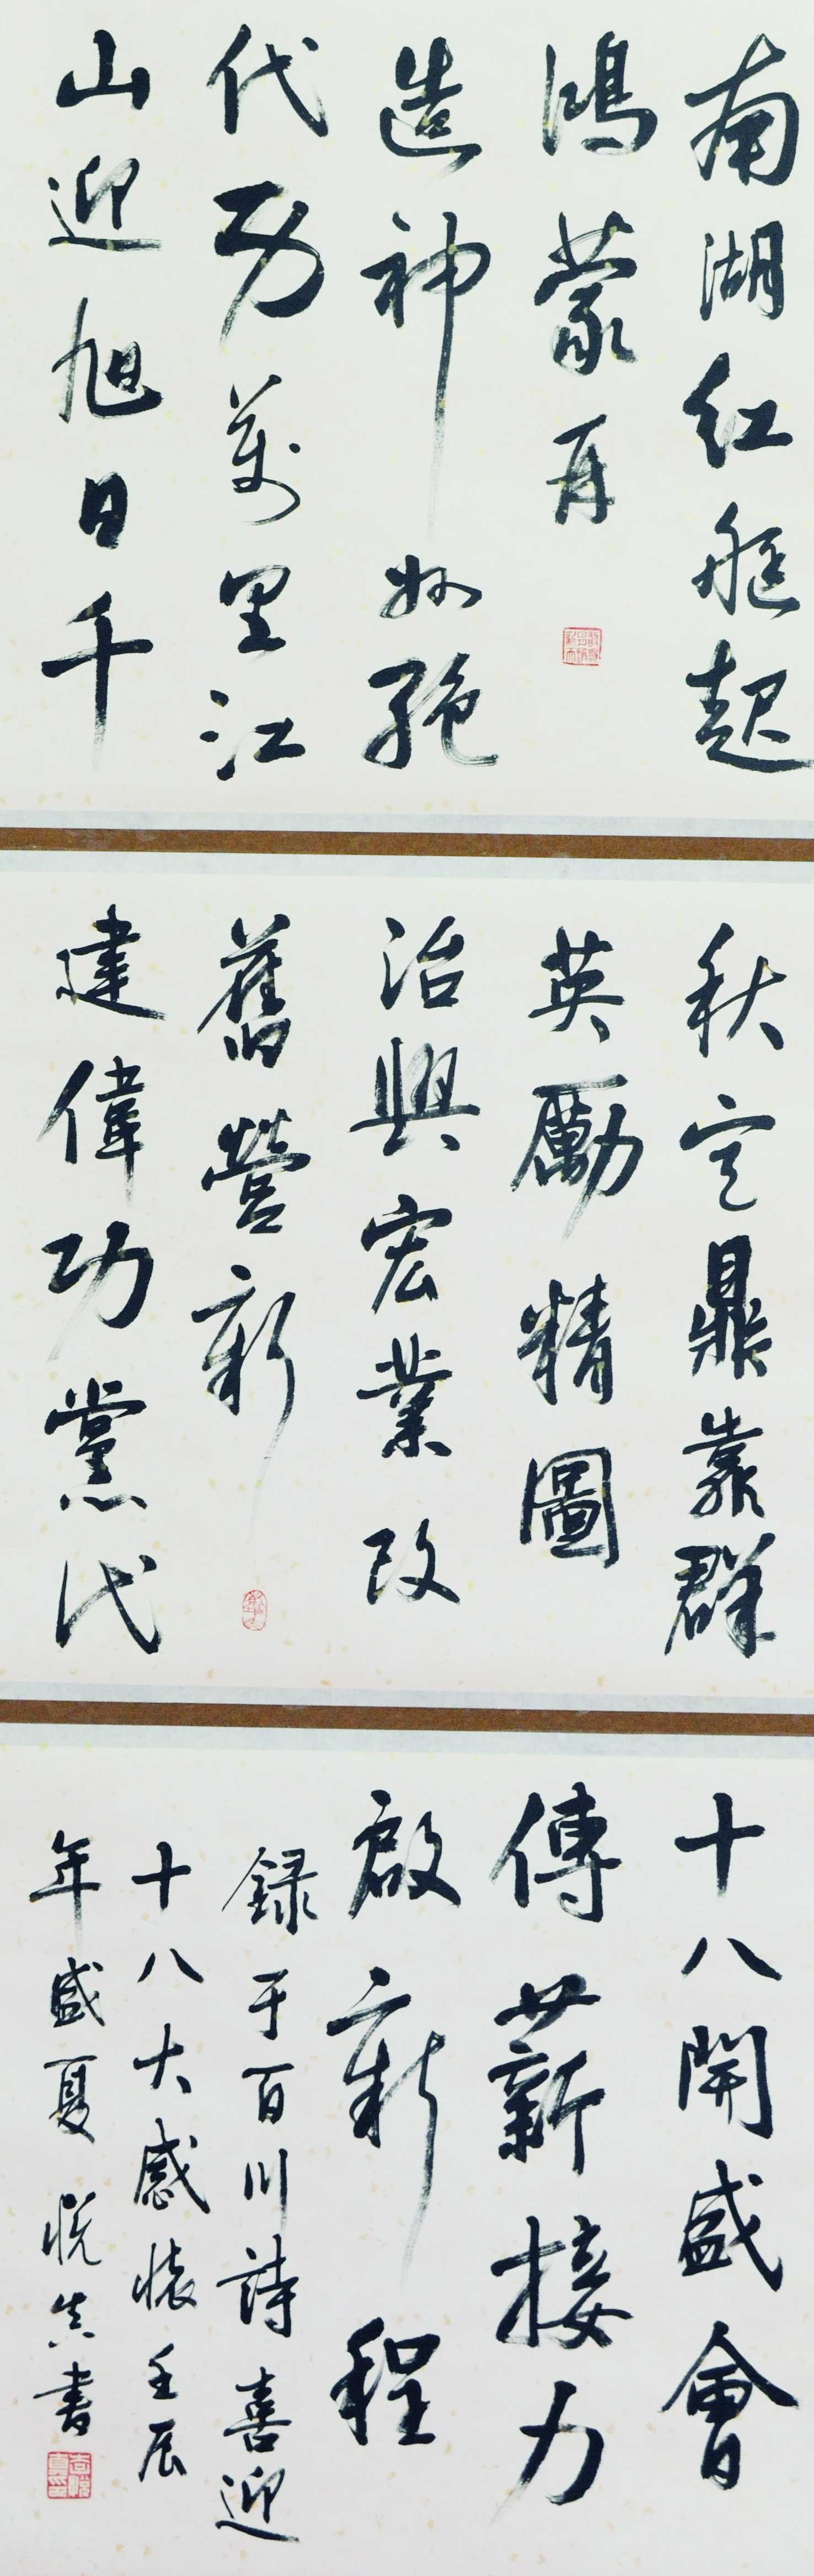 南湖红艇起
鴻蒙再
造神州艳
代功萬里江
山迎旭日千
秋定鼎靠群
英勵精圖
治興宏業改
舊營新
建偉功黨代
十八開盛會
傳薪接力
啟新程
録于百川詩喜迎
十八大感懷壬辰
年盛夏悦真書